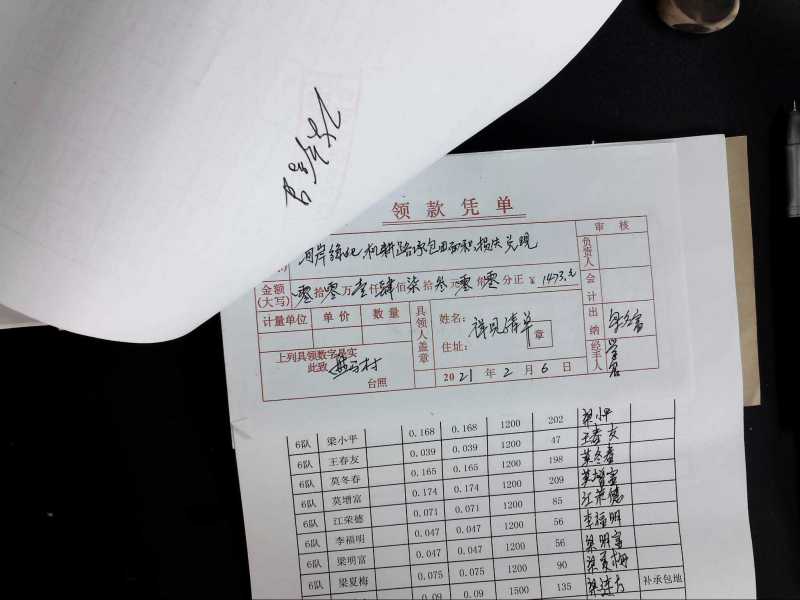 领款凭单
河岸绿化,机耕路承包田面积损失兑现
审核
负责人
会计
出纳
经手人
金额(大写) 零拾零万壹仟肆佰柒拾叁元零角零分正 ¥ 1473.元
计量单位 单价 数量
具领人盖章
姓名:
住址:
详见清单
章
上列具领数字是实
此致
台照
2021年2月6日
6队 梁小平 0.168 0.168 1200 202 梁小平
6队 王春友 0.039 0.039 1200 47 王春友
6队 莫冬春 0.165 0.165 1200 198 莫冬春
6队 莫增富 0.174 0.174 1200 209 莫增富
6队 江荣德 0.071 0.071 1200 85 江荣德
6队 李福明 0.047 0.047 1200 56 李福明
6队 梁明富 0.047 0.047 1200 56 梁明富
6队 梁夏梅 0.075 0.075 1200 90 梁夏梅
0.09 0.09 1500 135 补承包地